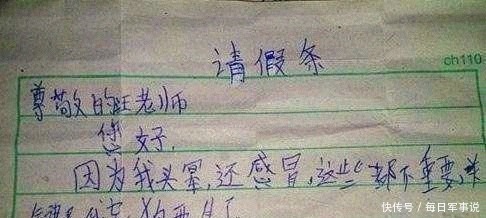 请假条
ch110
尊敬的旺老师
您好,
因为我头晕,还感冒,这些都不重要,关
狗要生了
快传号/每日军事说